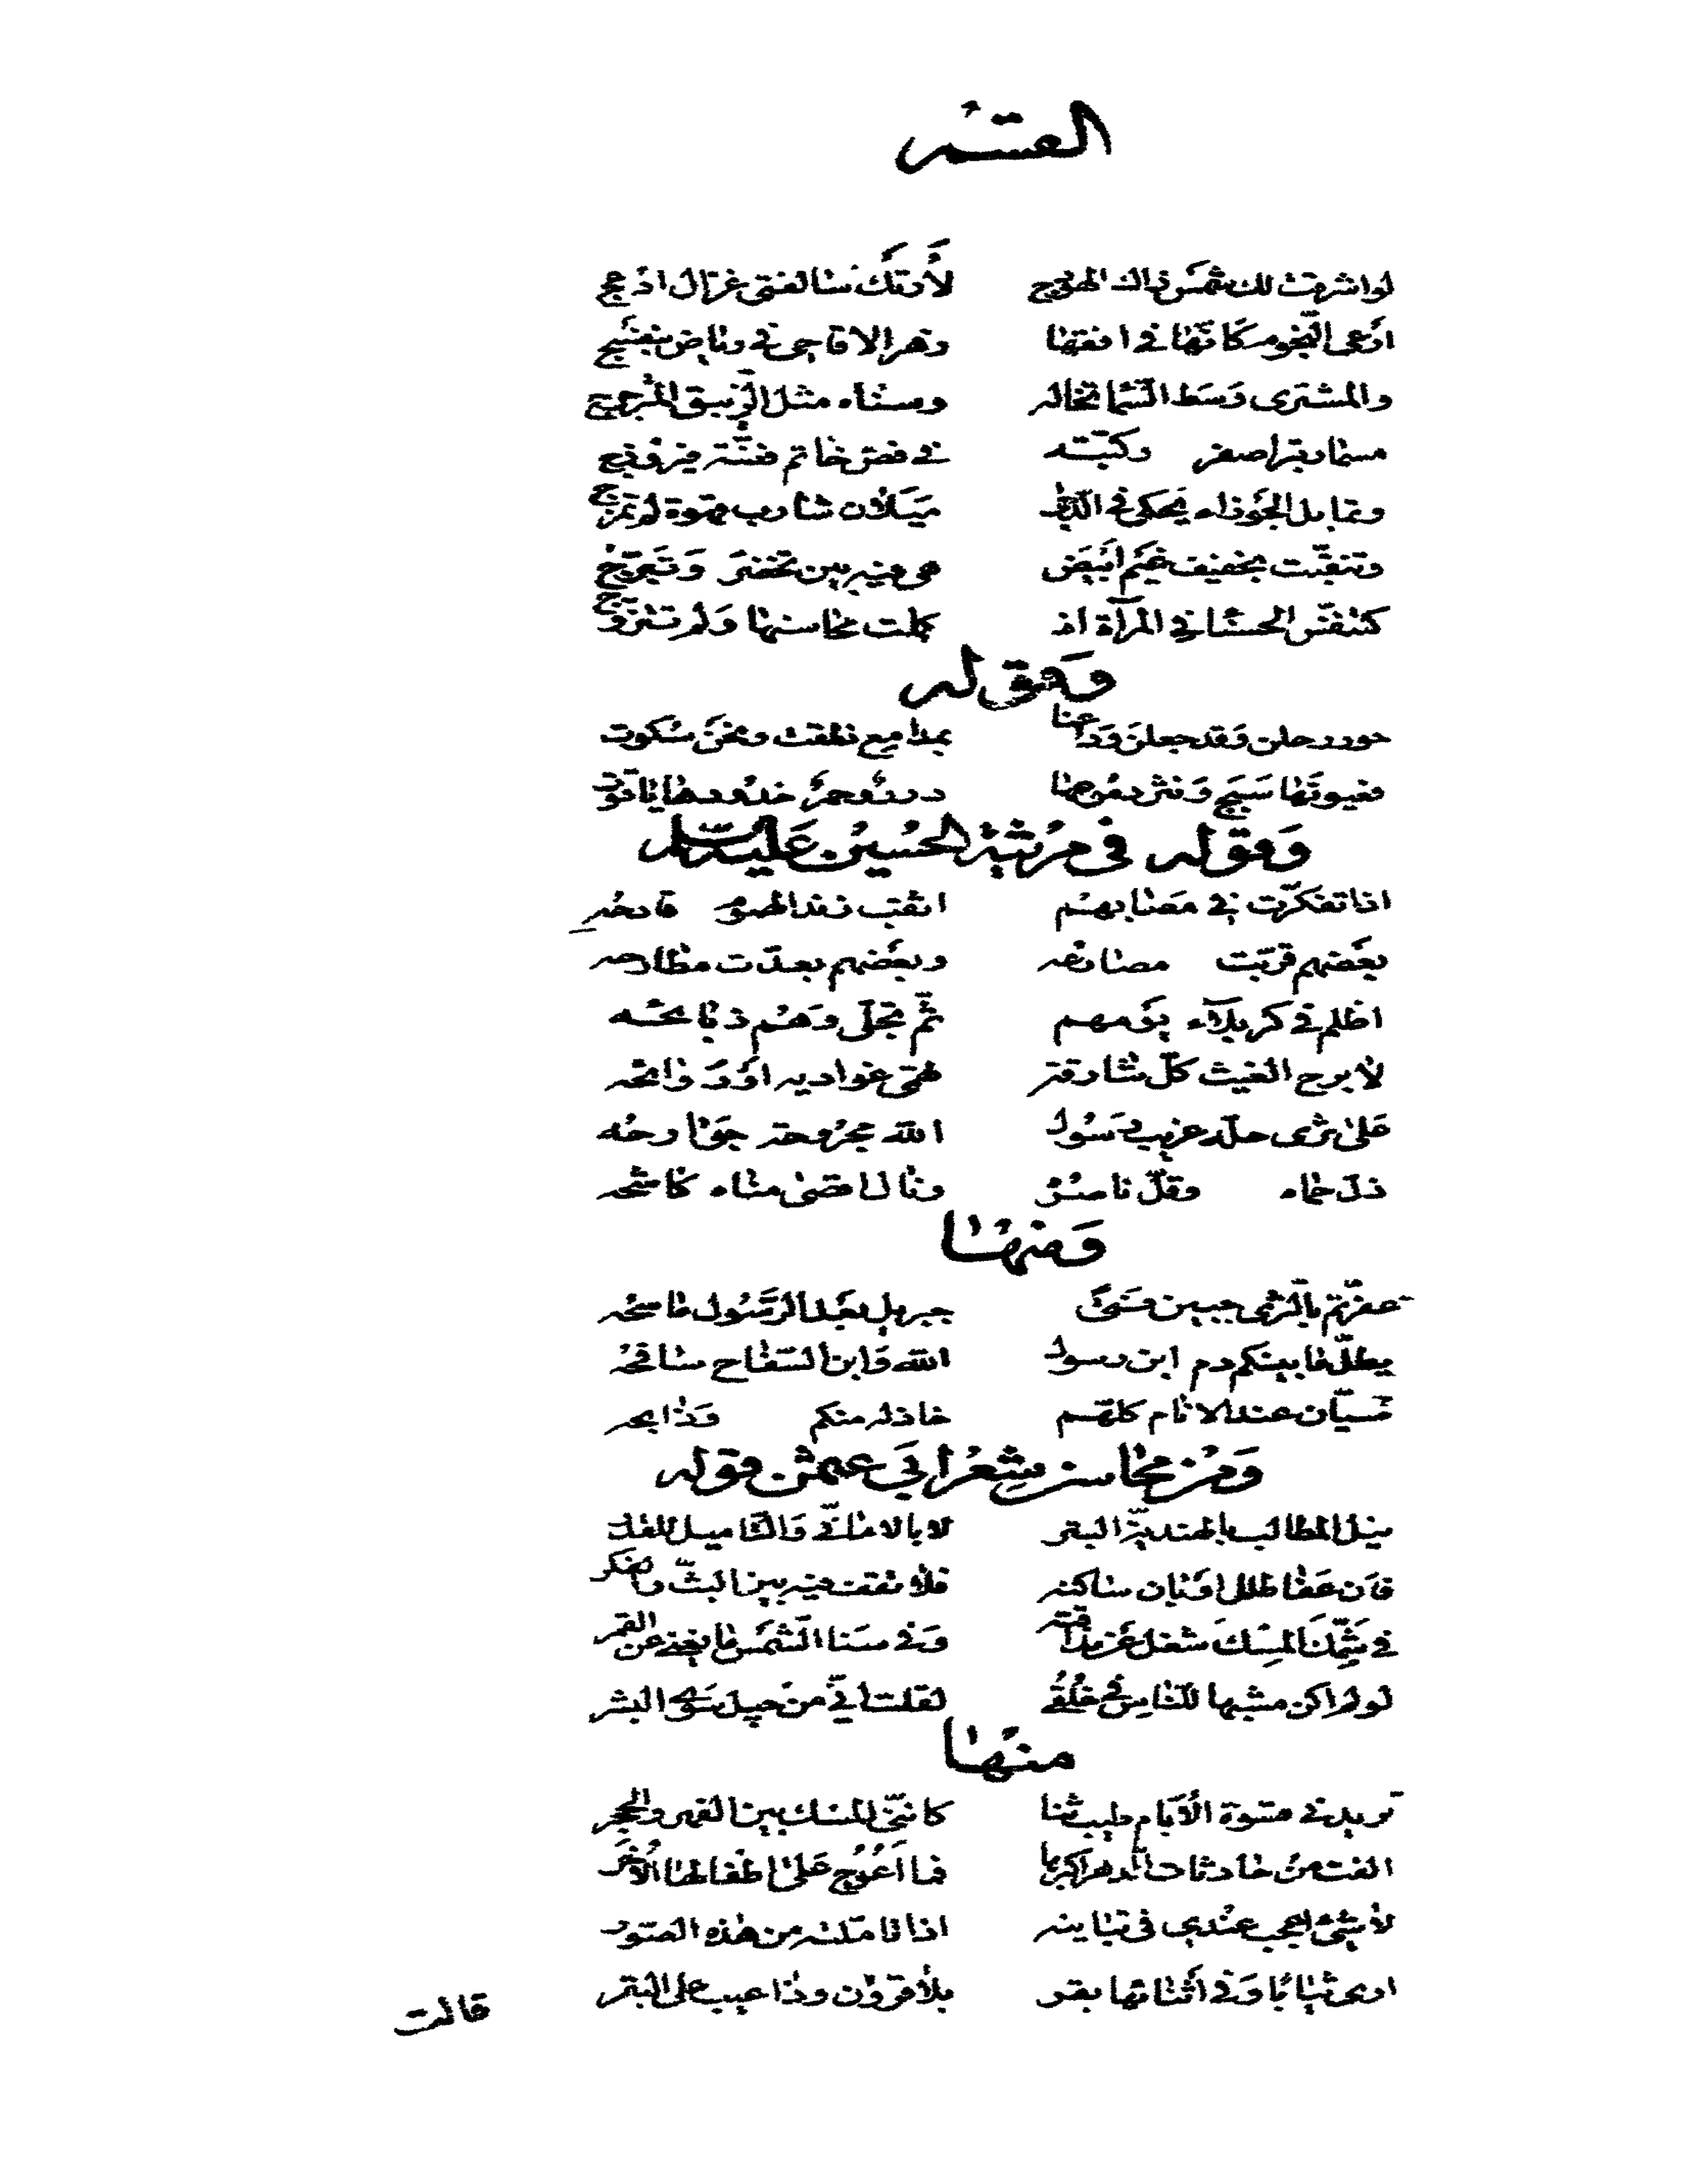 القسم
لو اشرقت لك شمس ذاك الهودج لأرتك سالفتى غزال ادعج
ارعى النجوم كأنها في افقها زهر الاقاحى في رياض بنفسج
والمشترى وسط السما تخاله وسناه مثل الزيبق المترجرج
مسمار تبر اصفر ركبته في فص خاتم فضة فيروزج
وتمايل الجوزاء يحكى في الدجى ميلان شارب قهوة لم تمزج
وتنقبت بخفيف غيم أبيض هى فيه بين تخفر وتبرج
كتنفس الحسنا في المرآة اذ كملت محاسنها ولم تتزوج
وقوله
حور رحلن وقد جعلن وداعنا بمدامع نطقت ونحن سكوت
فعيونها سبج ونثر دموعها درر وحمر خدودها ياقوت
وقوله في مرثية الحسين عليه السلام
اذا تفكرت في مصابهم اثقب زند الهموم قادحه
بعضهم قربت مصارعه وبعضهم بعدت مطارحه
اظلم في كربلاء يومهم ثم تجلى وهم ذبائحه
لا برح الغيث كل شارقة تهمى غواديه او روائحه
على ثرى حله غريب رسول الله مجروحة جوارحه
ذل حماه وقل ناصره ونال اقصى مناه كاشحه
ومنها
عفرتم بالثرى جبين فتى جبريل بعد الرسول ماسحه
يطل ما بينكم دم ابن رسول الله وابن السفاح سافحه
سيان عند الانام كلهم خاذله منكم وذابحه
ومن محاسن شعر ابي عثمن قوله
نيل المطالب بالهندية البتر لا بالاماني والتأميل للقدر
فان عفا طلل او بان ساكنه فلا تقف فيه بين البث والفكر
في شمك المسك شغل عن مذاقته وفي سنا الشمس ما يغني عن القمر
لو لم اكن مشبها للناس في خلقي لقلت اني من جيل سوى البشر
منها
تزيدني قسوة الأيام طيب ثنا كانني المسك بين الفهر والحجر
الفت من حادثات الدهر اكبرها فما أعوج على اطفالها الأخر
لا شئ اعجب عندي في تباينه اذا تاملته من هذه الصور
ارى ثيابا وفي أثنائها بقر بلا قرون وذا عيب على البقر
قالت